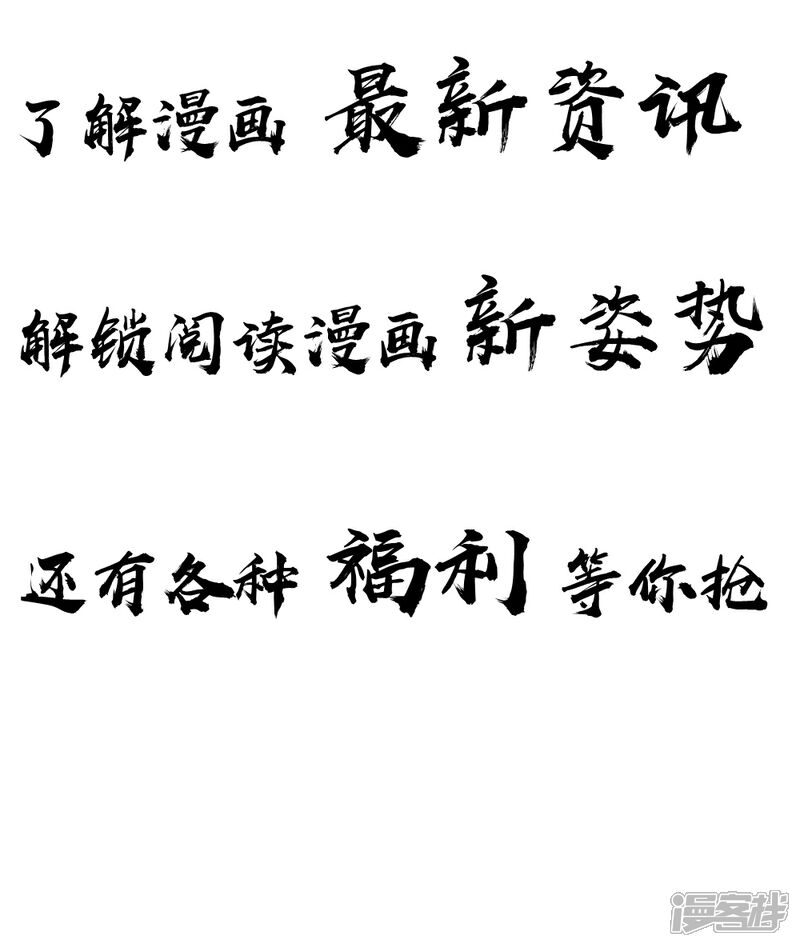 了解漫画 最新资讯
解锁阅读漫画 新姿势
还有各种 福利 等你抢
漫客栈